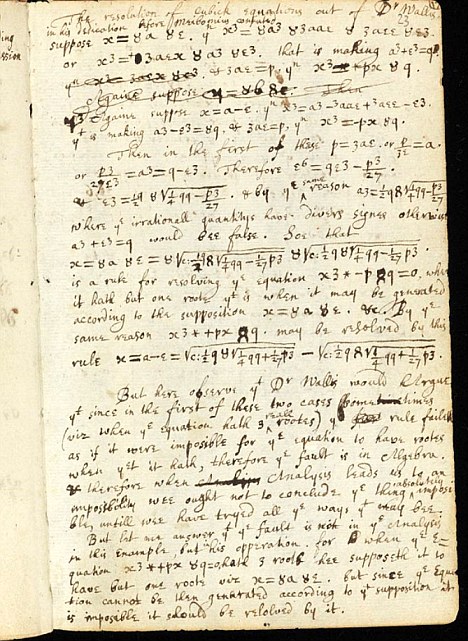 The resolution of Cubick equations out of Dr Wallis
in his dedication before Meibomius confuted
23
suppose x=8a8e. yn x3=8a383aae83aee8e3.
or x3=*3aex8a38e3. that is making a3+e3=q.
& 3ae=p. yn x3 *px8q.
Againe suppose x=a-e. yn x3=a3-3aae+3aee-e3.
yt is making a3-e3=8q. & 3ae=p. yn x3=-px8q.
Then in the first of these p=3ae. or p/3e=a.
or p3/27e3=a3=q-e3. Therefore e6=qe3-p3/27.
& e3=½q8√¼qq-p3/27. & by ye same reason a3=½q8√¼qq-p3/27
where ye irrationall quantitys have divers signes otherwise
a3+e3=q would bee false. Soe that
x=8a8e=8√c:½q8√¼qq-1/27p3 8√c:½q8√¼qq-1/27p3.
is a rule for resolving ye equation x3*-p8q=0, when
it hath but one roote yt is when it may be generated
according to the supposition x=8a8e. &c. By ye
same reason x3*+px8q. may be resolved by this
rule x=a-e=√c:½q8√¼qq+1/27p3 -√c:½q8√¼qq+1/27p3.
But here observe yt Dr Wallis would Argue
yt since in the first of these two cases sometimes
(viz when ye equation hath 3 reall rootes) ye rule faileth
as if it were imposible for ye equation to have rootes
when yet it hath, therefore ye fault is in Algebra.
& therefore when Analysis leads us to an
impossibility wee ought not to conclude ye thing absolutely impossi
ble, untill wee have tryed all ye ways yt may bee.
But let me answer yt ye fault is not in ye Analysis
in this example, but his opperation. for when ye e-
quation x3*+px8q=o hath 3 roots hee supposeth it to
have but one roote viz x=8a8e. but since ye Equa
tion cannot be then generated according to yt supposition it
is imposible it should be resolved by it.